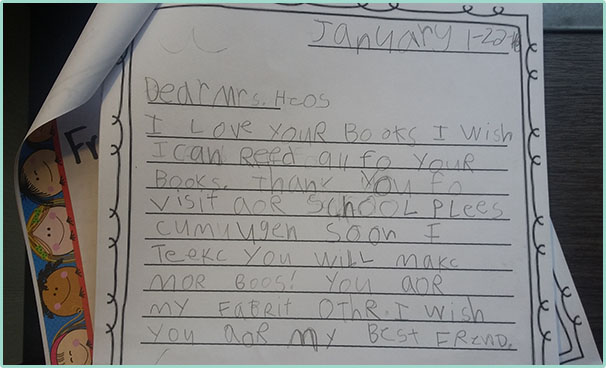 January 1-22-16
Dear Mrs. Heos
I Love YouR Books I wish
I can Reed all fo YouR
Books. Thank You Fo
Visit aoR SchooL PLees
cumuygen Soon I
Teekc You wiLL makc
moR Boos! You aoR
my FabRit OthR. I wish
You aoR my Best FRend.
Fr